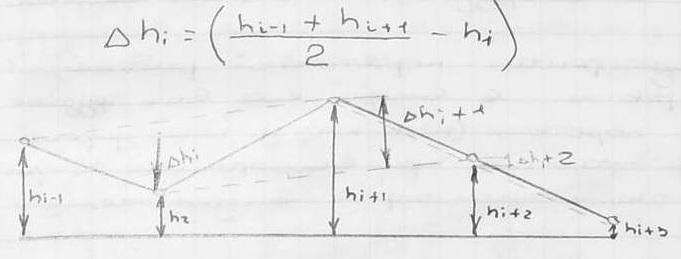 Δhi = (hi-1 + hi+1 / 2 - hi)
Δhi+1
Δhi
Δhi+2
hi-1
h2
hi+1
hi+2
hi+3